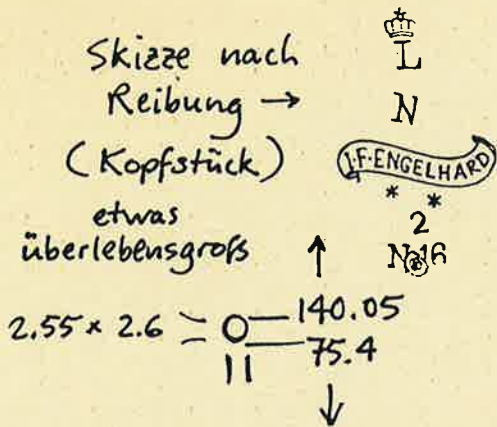 Skizze nach
Reibung →
(Kopfstück)
etwas
überlebensgroß
L
N
J·F·ENGELHARD
* *
2
No 16
2.55 × 2.6
140.05
75.4